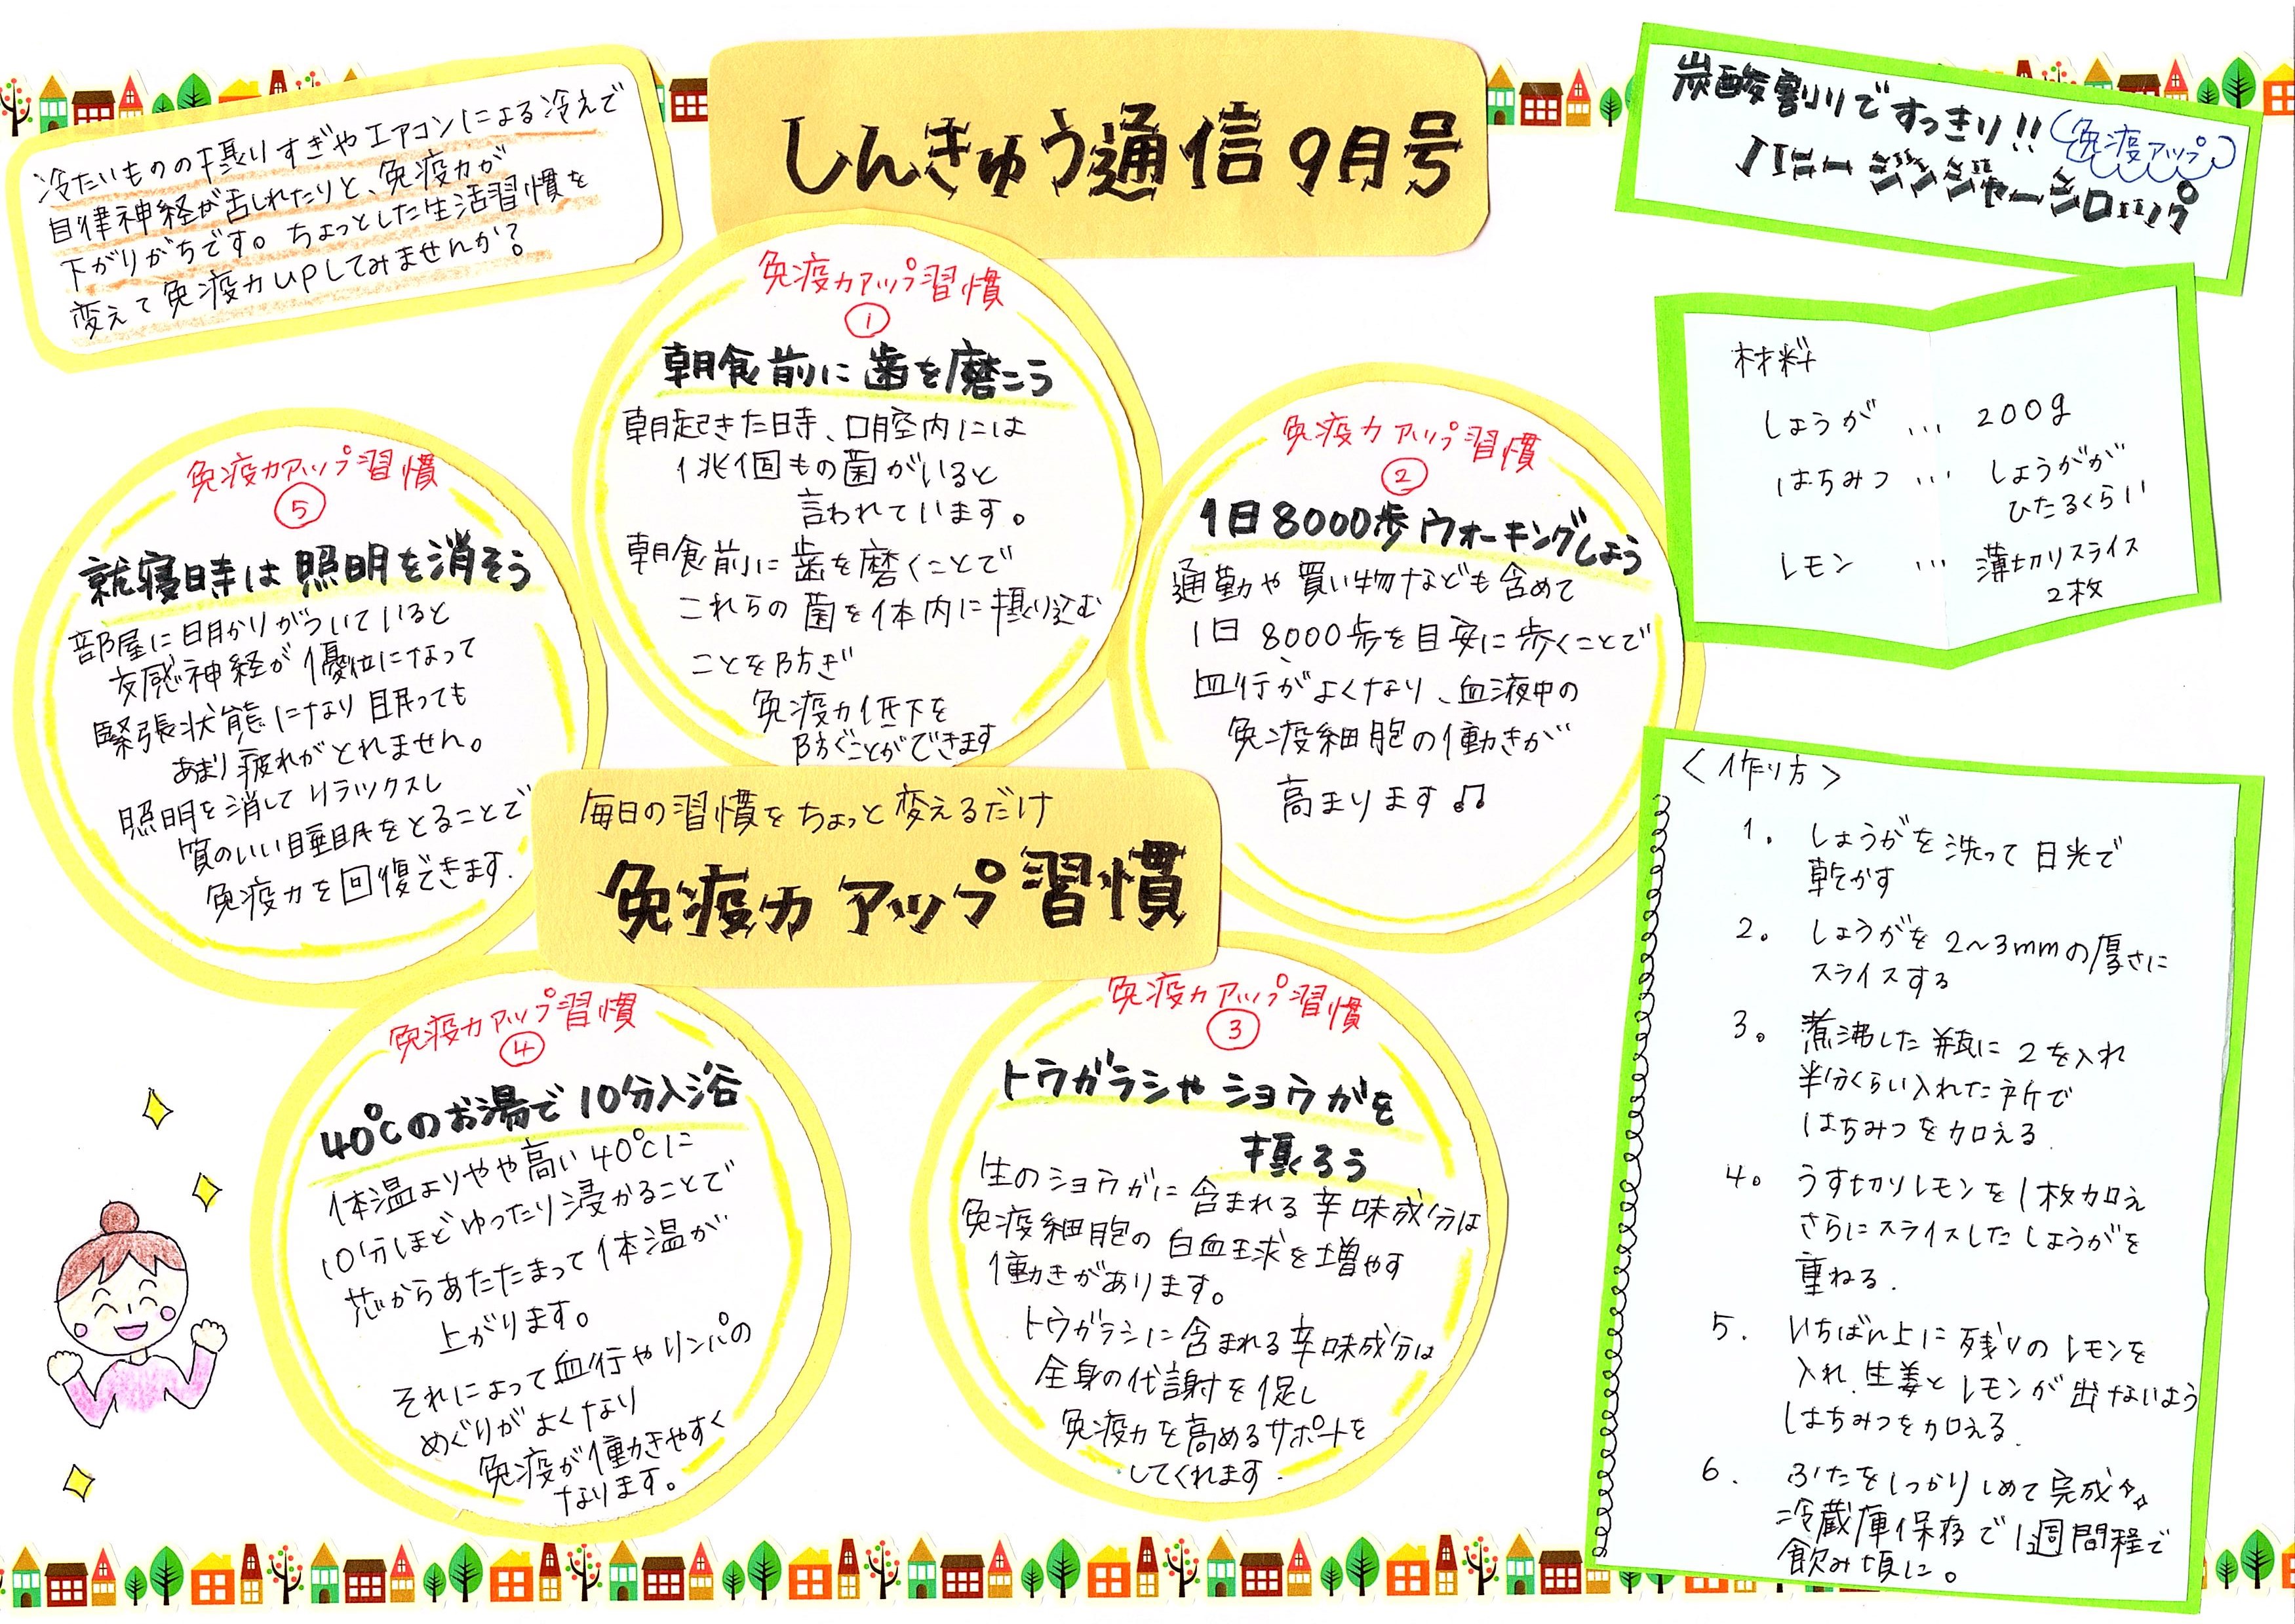 しんきゅう通信 9月号
冷たいものの摂りすぎやエアコンによる冷えで
自律神経が乱れたりと、免疫力が
下がりがちです。ちょっとした生活習慣を
変えて免疫力UPしてみませんか?
免疫力アップ習慣
①
朝食前に歯を磨こう
朝起きた時、口腔内には
1兆個もの菌がいると
言われています。
朝食前に歯を磨くことで
これらの菌を体内に摂り込む
ことを防ぎ
免疫力低下を
防ぐことができます
免疫力アップ習慣
②
1日8000歩ウォーキングしよう
通勤や買い物なども含めて
1日8000歩を目安に歩くことで
血行がよくなり、血液中の
免疫細胞の働きが
高まります♫
毎日の習慣をちょっと変えるだけ
免疫力アップ習慣
免疫力アップ習慣
③
トウガラシやショウガを
摂ろう
生のショウガに含まれる辛味成分は
免疫細胞の白血球を増やす
働きがあります。
トウガラシに含まれる辛味成分は
全身の代謝を促し
免疫力を高めるサポートを
してくれます.
免疫力アップ習慣
④
40℃のお湯で10分入浴
体温よりやや高い40℃に
10分ほどゆったり浸かることで
芯からあたたまって体温が
上がります。
それによって血行やリンパの
めぐりがよくなり
免疫が働きやすく
なります。
免疫力アップ習慣
⑤
就寝時は照明を消そう
部屋に明かりがついていると
交感神経が優位になって
緊張状態になり眠っても
あまり疲れがとれません。
照明を消してリラックスし
質のいい睡眠をとることで
免疫力を回復できます.
炭酸割りですっきり!!
免疫アップ
ハニージンジャーシロップ
材料
しょうが … 200g
はちみつ … しょうがが
ひたるくらい
レモン … 薄切りスライス
2枚
<作り方>
1. しょうがを洗って日光で
乾かす
2. しょうがを2~3mmの厚さに
スライスする
3. 煮沸した瓶に2を入れ
半分くらい入れた所で
はちみつを加える.
4. うす切りレモンを1枚加え
さらにスライスしたしょうがを
重ねる.
5. いちばん上に残りのレモンを
入れ、生姜とレモンが出ないよう
はちみつを加える.
6. ふたをしっかりしめて完成
冷蔵庫保存で1週間程で
飲み頃に。